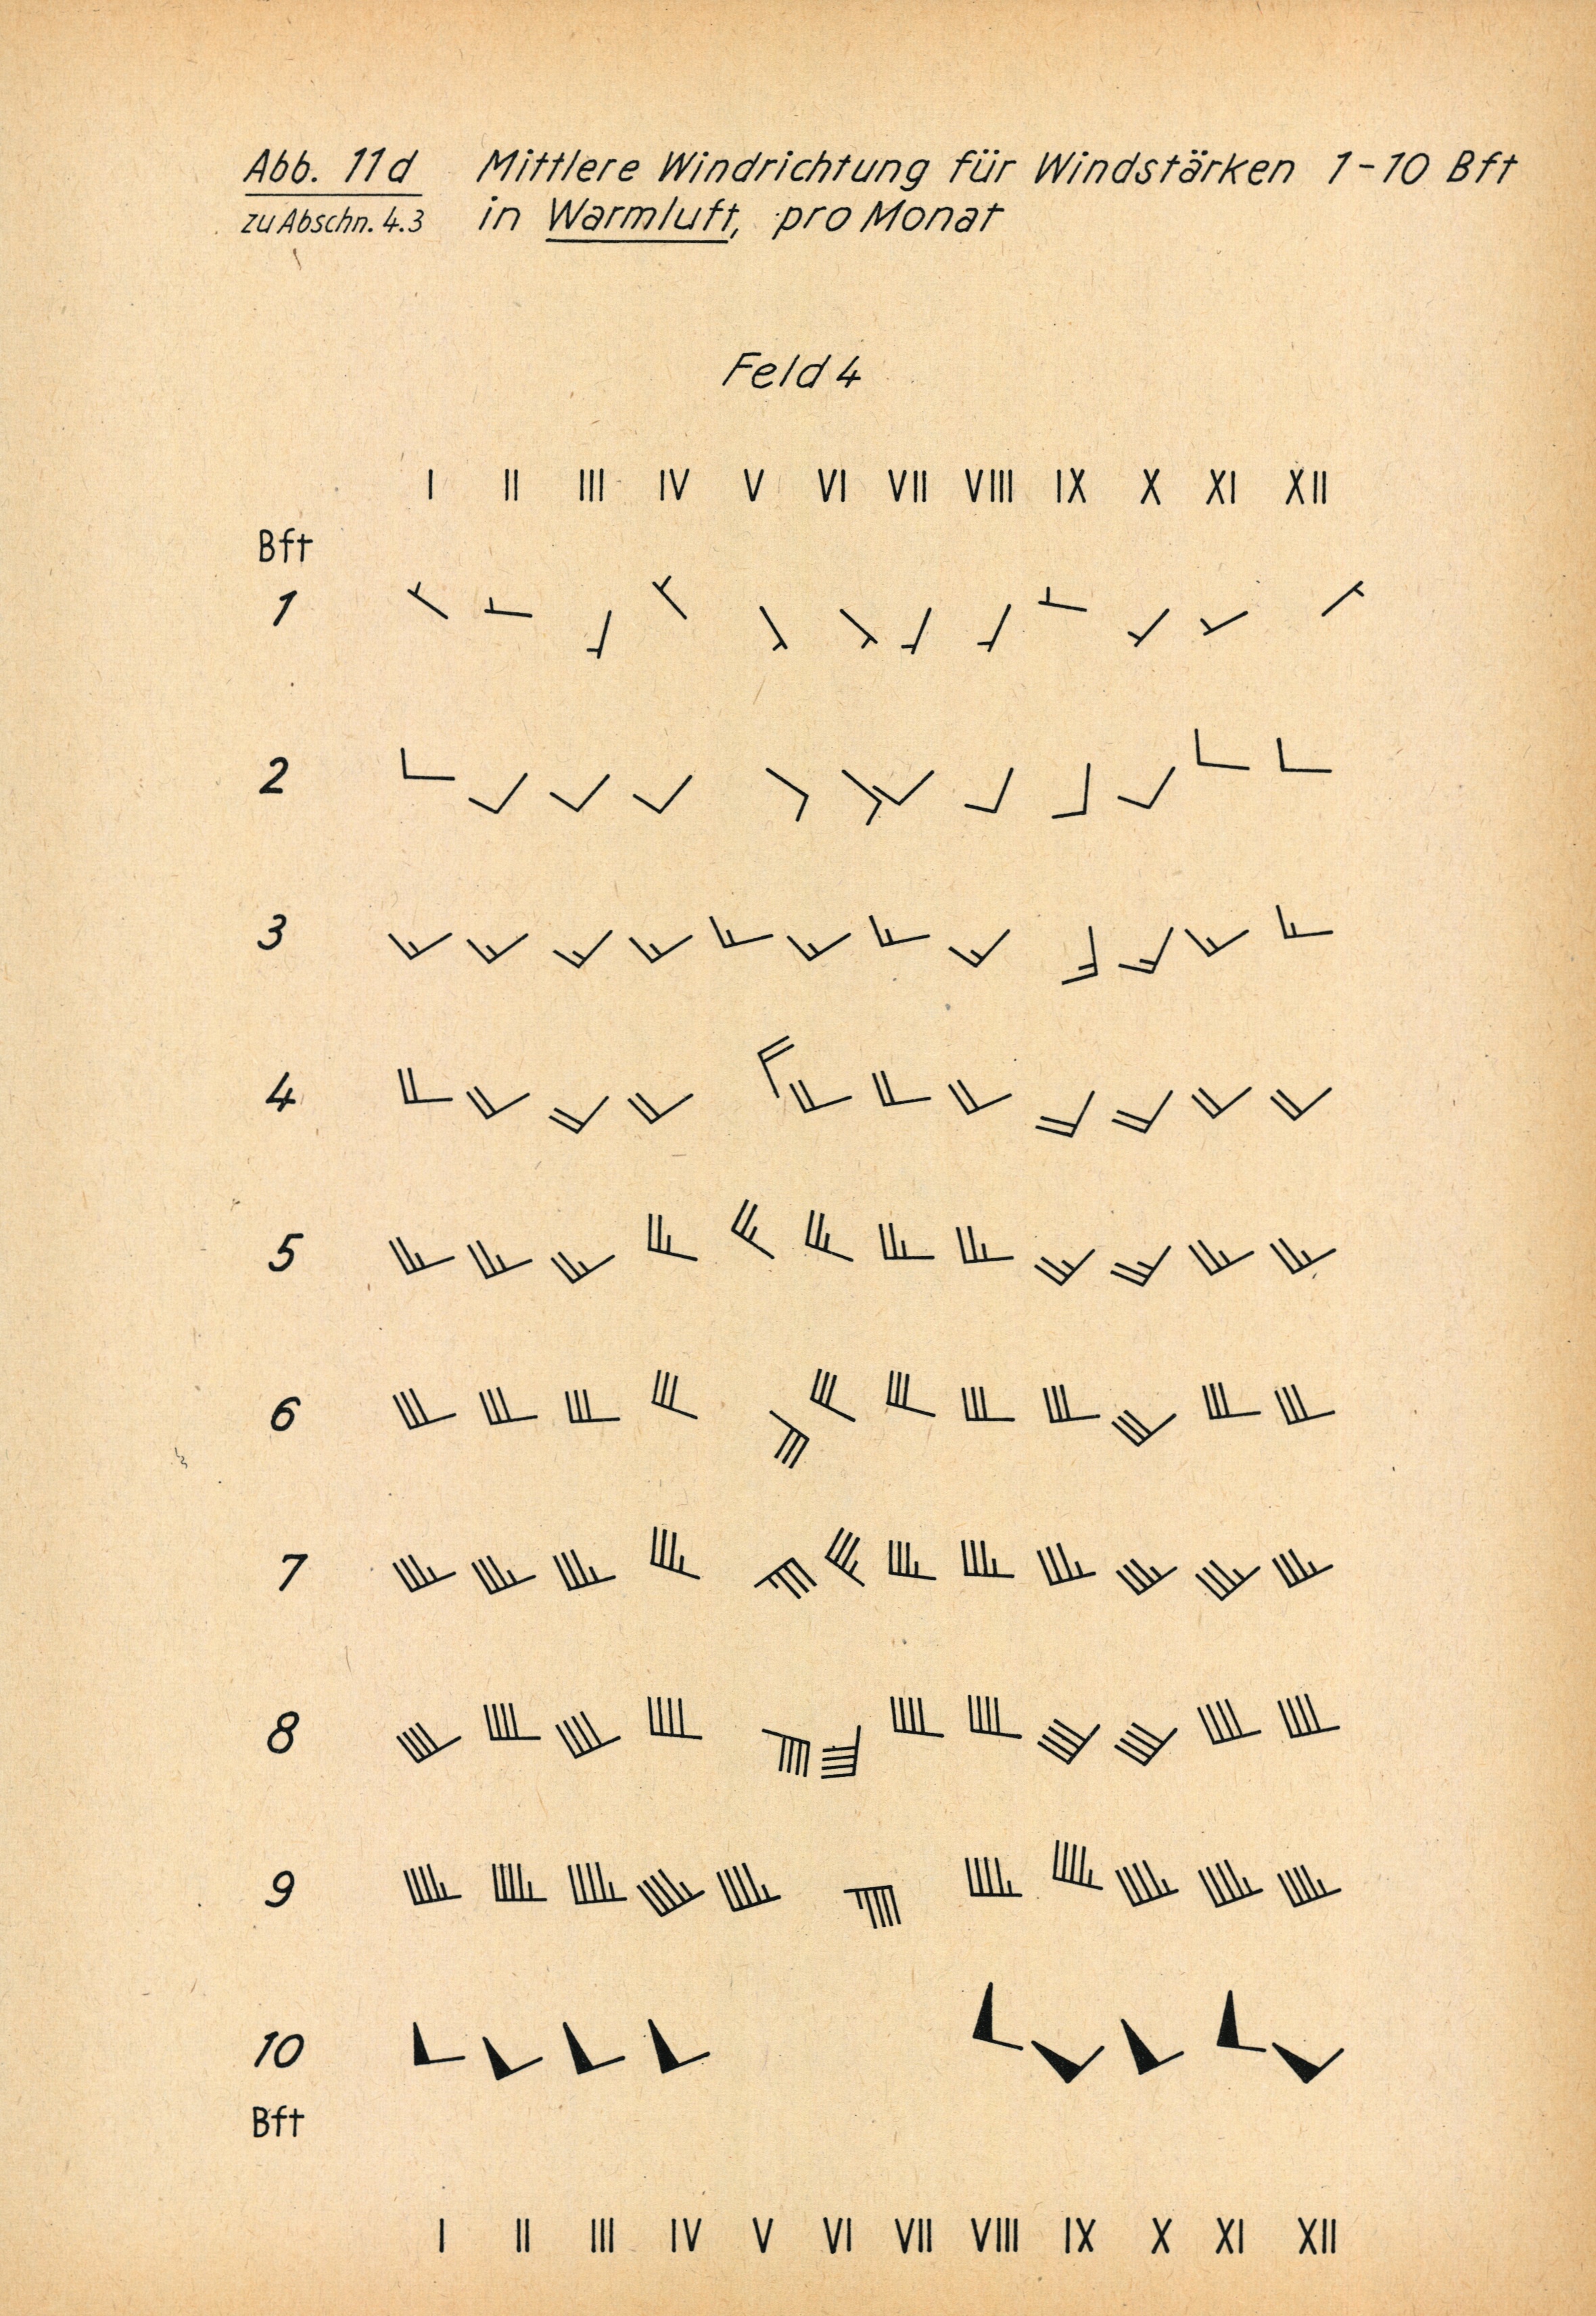 Abb. 11d Mittlere Windrichtung für Windstärken 1-10 Bft
zu Abschn. 4.3 in Warmluft, pro Monat
Feld 4
I II III IV V VI VII VIII IX X XI XII
Bft
1
2
3
4
5
6
7
8
9
10
Bft
I II III IV V VI VII VIII IX X XI XII